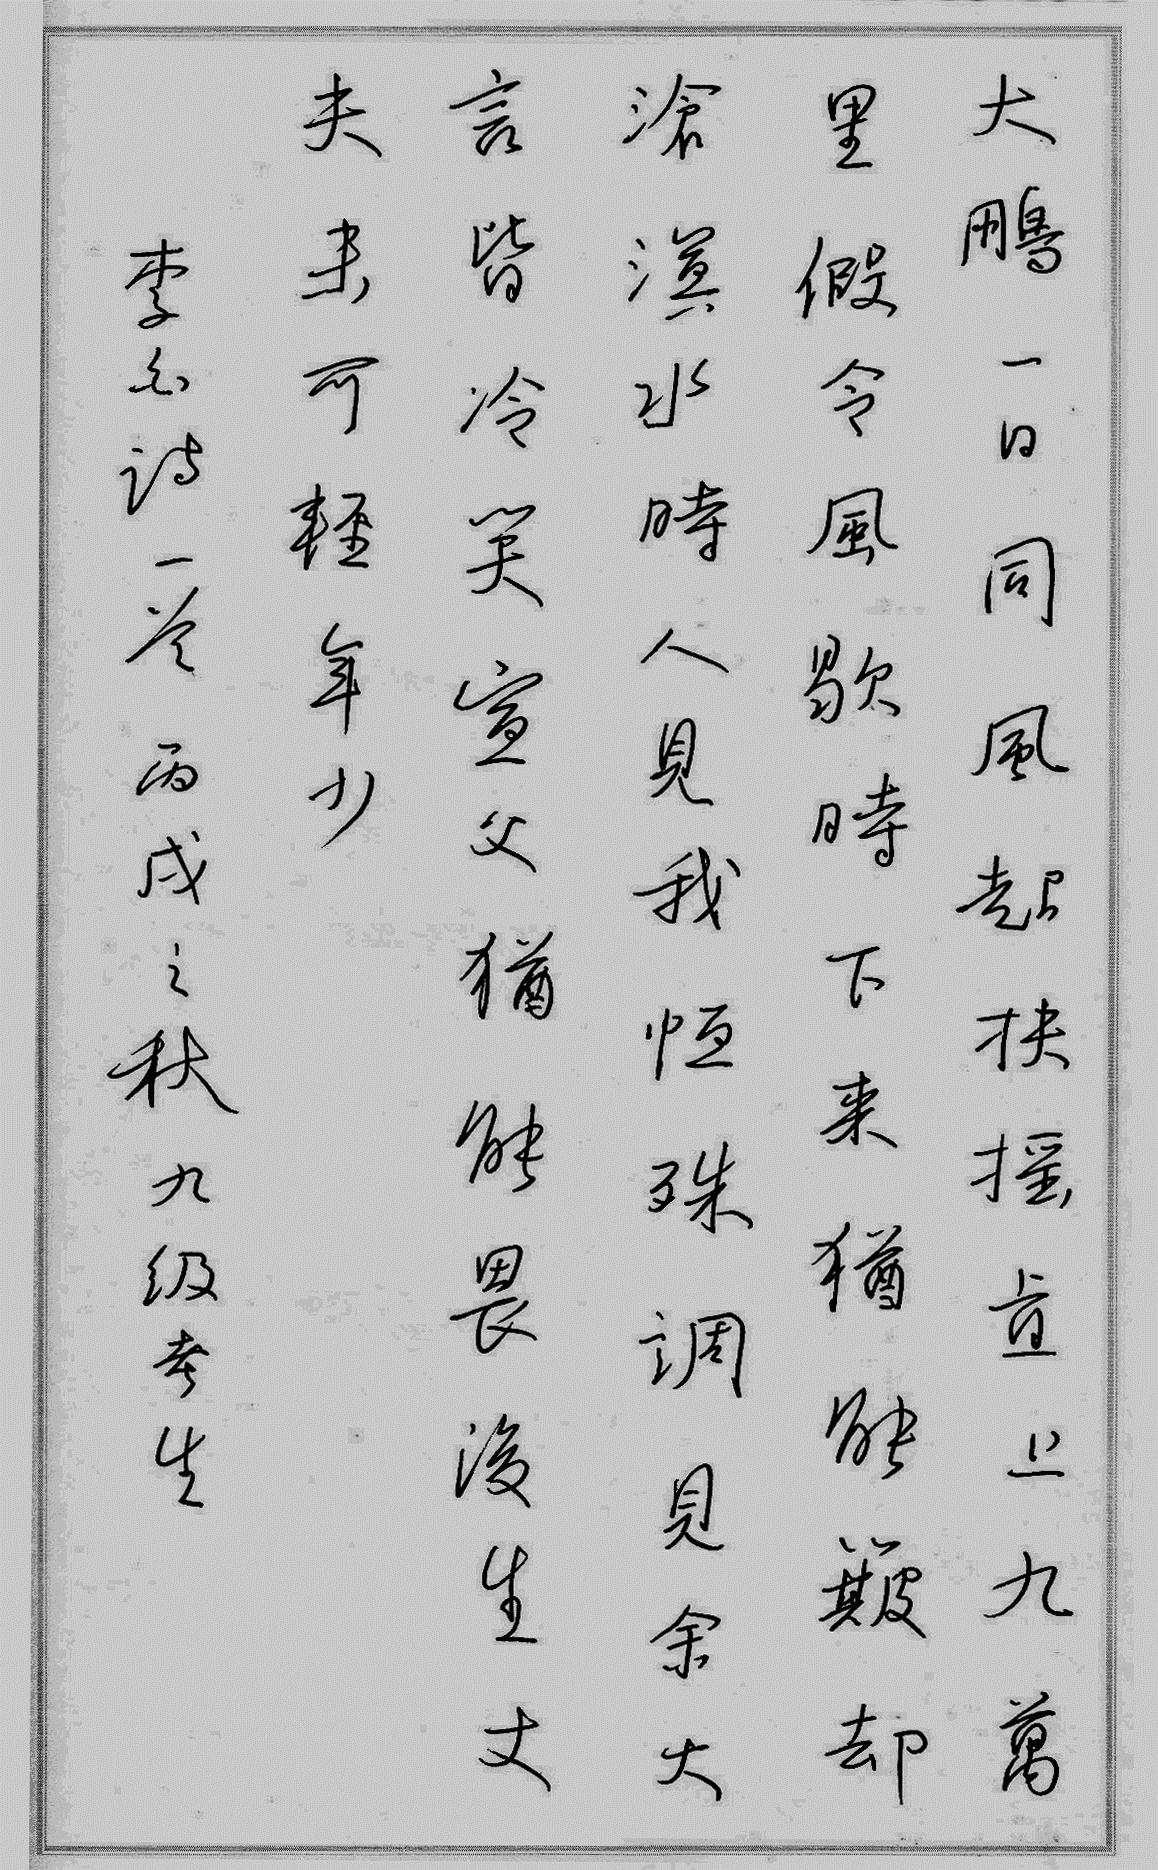 大鵬一日同風起扶摇直上九萬
里假令風歇時下来猶能簸却
滄溟水時人見我恒殊調見余大
言皆冷笑宣父猶能畏後生丈
夫未可輕年少
李白诗一首 丙戌之秋九级考生